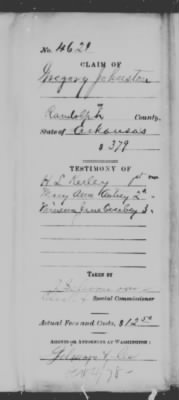 No. 4629
CLAIM OF
Gregory Johnston
Randolph County,
State of Arkansas
$ 379
TESTIMONY OF
H L Kerley 1st Page
Mary Ann Kerley 2 "
Jane 3 "
TAKEN BY
Special Commissioner
Actual Fees and Costs, $12.50
ADDRESS ATTORNEYS AT WASHINGTON:
Gilmore & Co